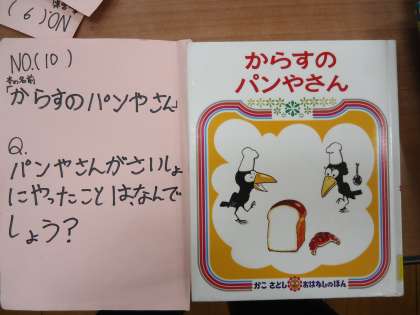 NO.(9)
NO.(10)
本の名前
「からすのパンやさん」
Q.
パンやさんがさいしょ
にやったことは、なんで
しょう?
からすの
パンやさん
かこ さとし おはなしのほん